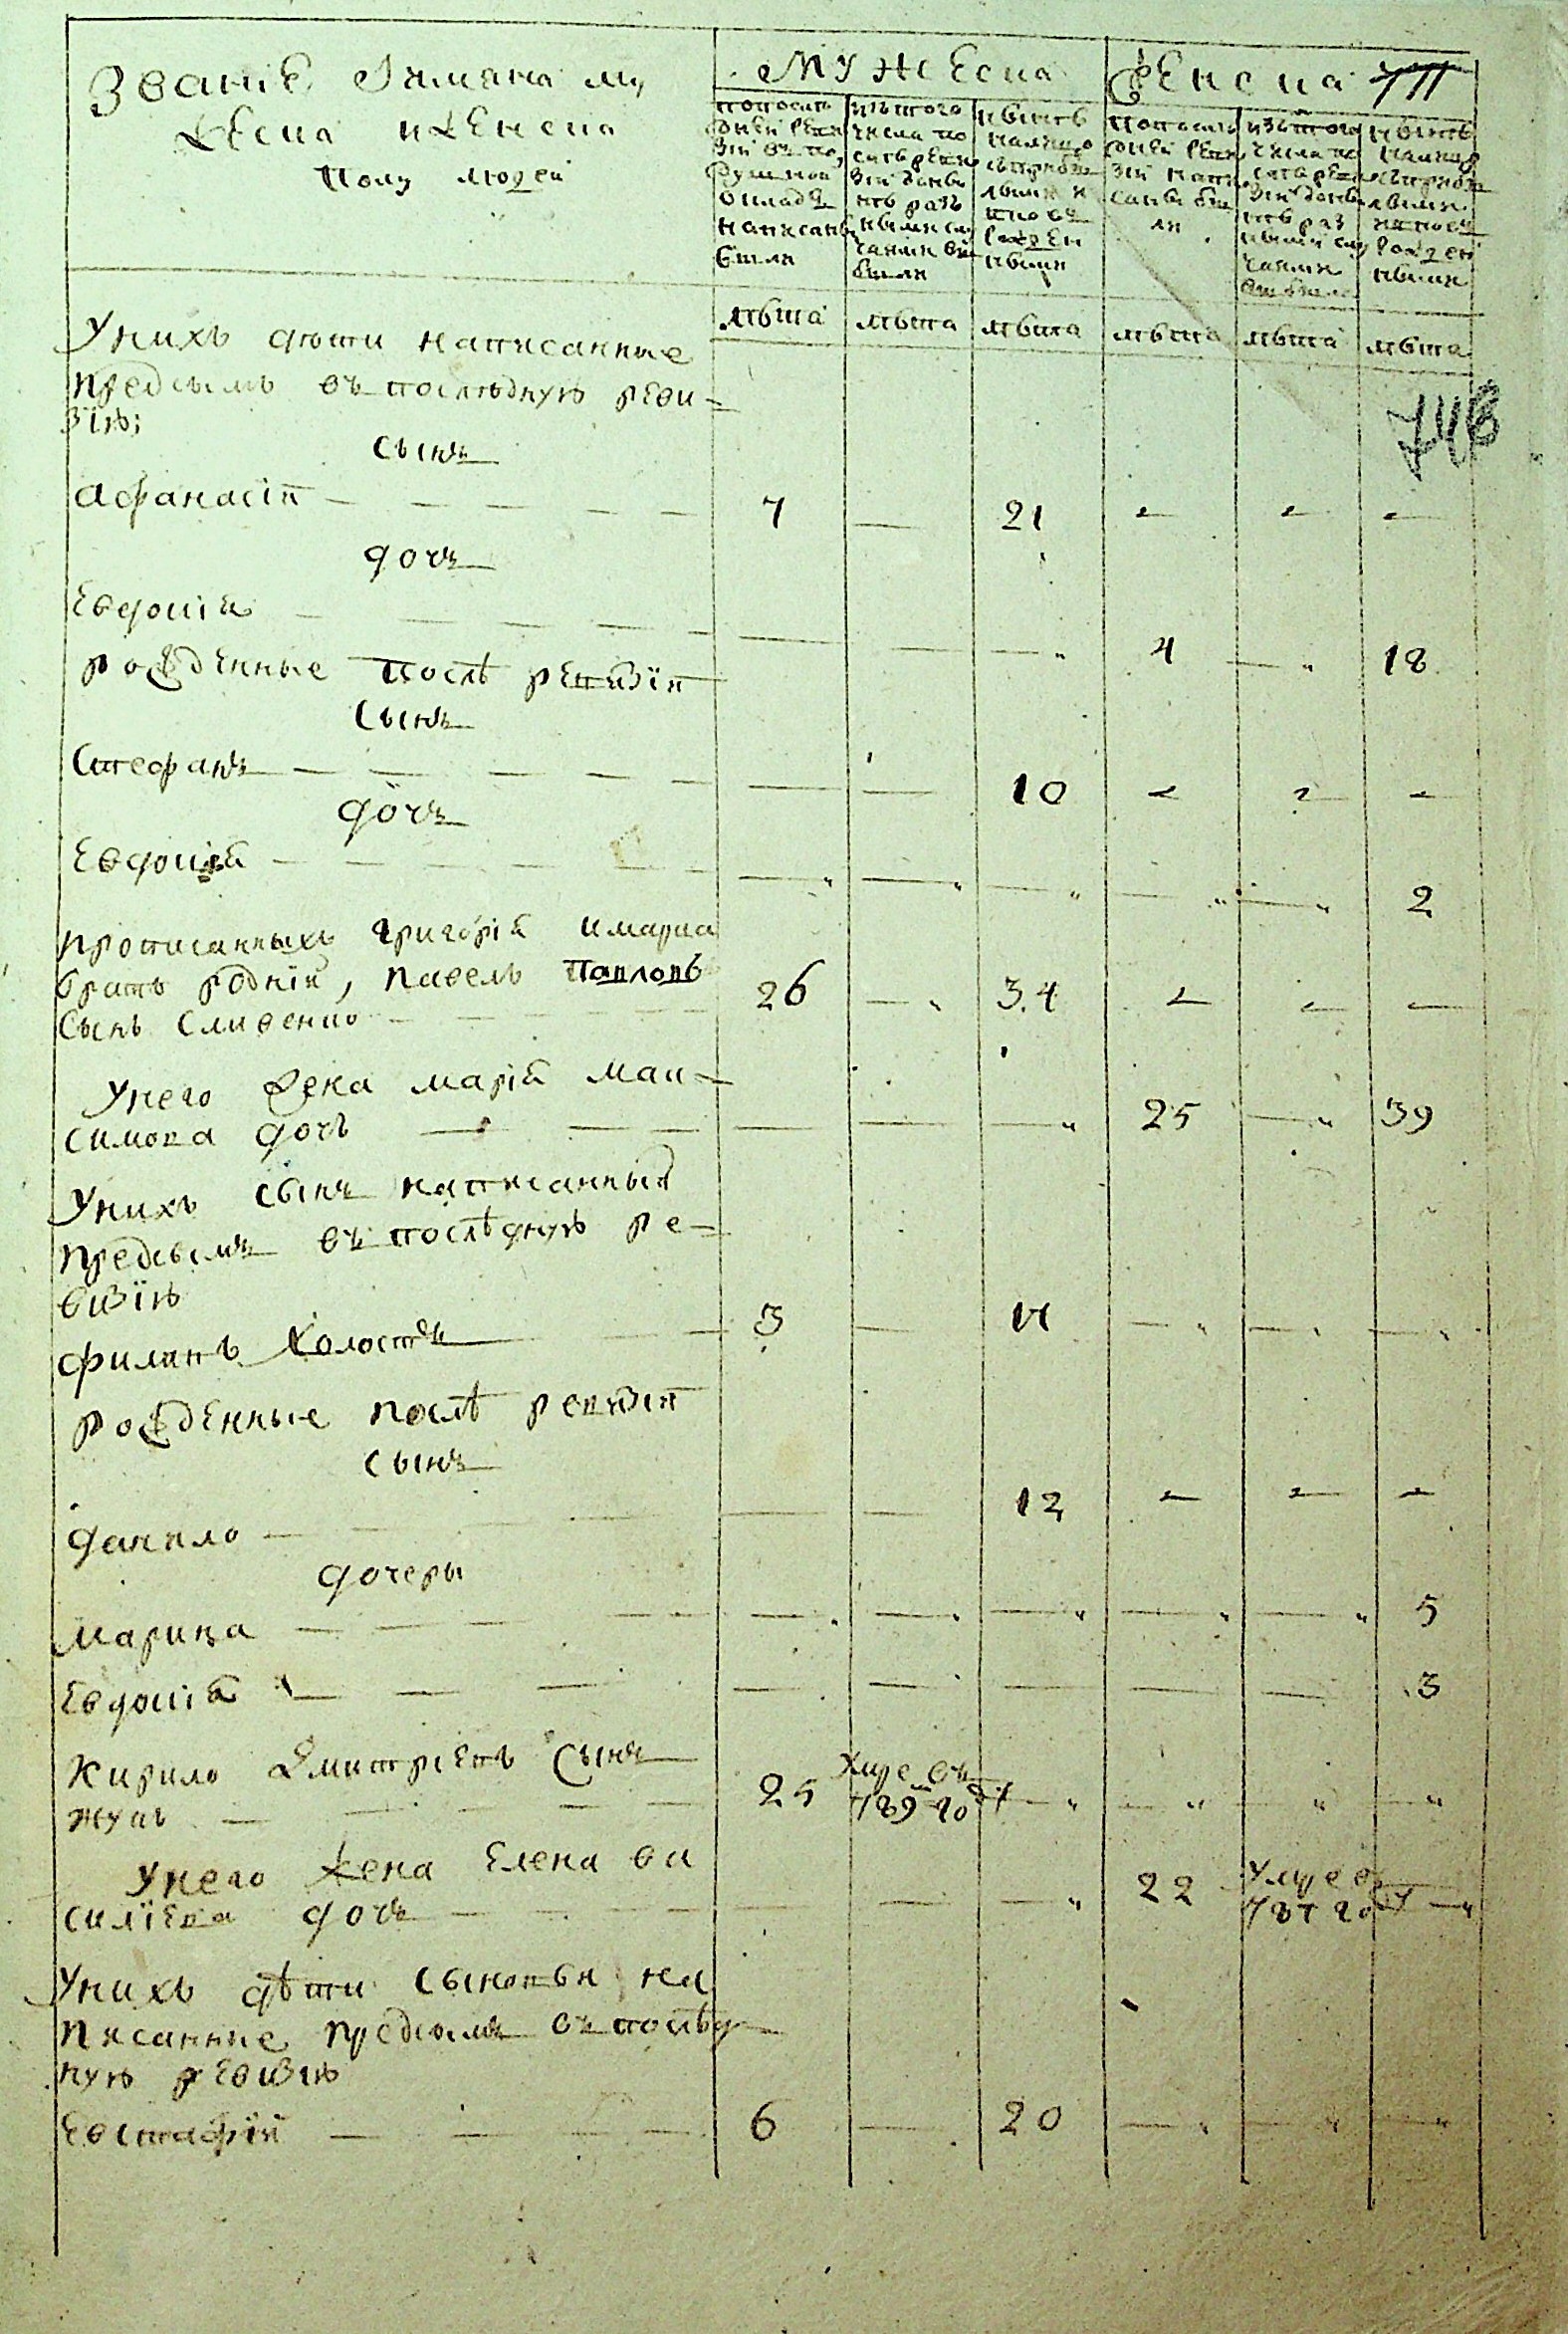 Званіе Ѝимяна му
жеска иженска
полу людей
Мужеска
Женска
попослѣ
дней реви
зіи въ по
душной
окладъ
написаны
были
изътого
числа по
слѣ реви
зіи
разъ
нными слу
чаями вы
были
нынѣ
налицо
съприбы
лыми и
вновь
рожден
ными
попослѣ
дней реви
зіи напи
саны бы
ли
изътого
числа по
слѣ реви
зіи
раз
ными слу
чаями
нынѣ
налицо
съприбы
лыми
ивновь
рожден
ными
лѣта лѣта лѣта лѣта лѣта лѣта
Унихъ дѣти написанные
предсымъ въ последную реви-
зію;
сынъ
Афанасій — 7 — 21 — — —
дочь
Евдокія — — — — 4 — 18
рожденные послѣ ревизіи
сынъ
Стефанъ — — — 10 — — —
дочь
Евдокія — — — — — — 2
прописанныхъ григорія имарка
братъ родній, павелъ Павловъ
сынъ Сливенко — 26 — 34 — — —
Унего жена марія мак-
симова дочь — — — — 25 — 39
Унихъ сынъ написанный
предсымъ въ послѣдную ре-
визію
филипъ холостъ — 3 — 17 — — —
рожденные послѣ ревизіи
сынъ
данило — — — 12 — — —
дочеры
марина — — — — — — 5
Евдокія — — — — — — 3
Кирило Дмитріевъ Сынъ 25 Умре въ
789 году — — — —
жукъ —
Унего жена Елена ва
силіева дочь — — — — 22 Умре въ
787 году —
Унихъ дѣти сыновья на
писанные предсымъ въ послѣд
ную ревизію
Евстафій — 6 — 20 — — —